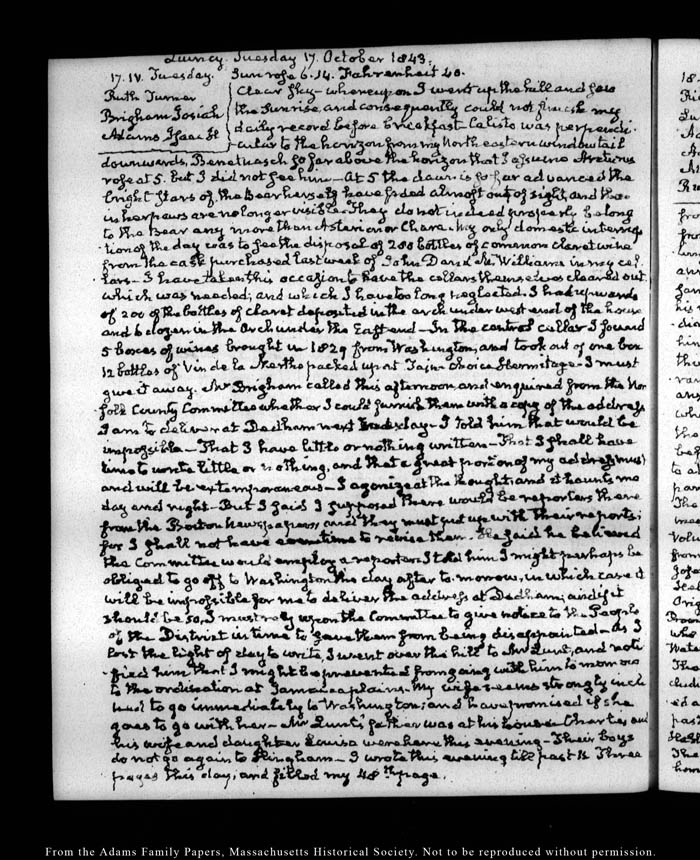 Quincy. Tuesday 17. October 1843.
17. IV. Tuesday. Sun rose 6.14. Fahrenheit 40.
Ruth Turner
Brigham Josiah
Adams Isaac H
Clear sky - whereupon I went up the hill and saw
the Sunrise and consequently could not finish my
daily record before breakfast. Calisto was perpendi-
cular to the horizon from my North eastern window tail
downwards, Benetnasch so far above the horizon that I assume Arcturus
rose at 5. but I did not see him - At 5 the dawn is so far advanced the
bright stars of the Bear herself have faded almost out of sight, and the
is her paws are no longer visible. They do not indeed properly belong
to the Bear any more than Asterion or Chara. My only domestic interrup-
tion of the day was to see the disposal of 200 bottles of common claret wine
from the cask purchased last week of John D. and M. Williams in my cel-
lars - I have taken this occasion to have the cellars themselves cleared out
which was needed, and which I have too long neglected. I had upwards
of 200 of the bottles of claret deposited in the arch under west end of the house
and 6 dozen in the Arch under the East end - In the central cellar I found
5 boxes of wines brought in 1829 from Washington, and took out of one box
12 bottles of Vin de la Nerthe packed up at Tain. Choice Hermitage - I must
give it away. Mr Brigham called this afternoon, and enquired from the Nor-
folk County Committee whether I could furnish them with a copy of the address
I am to deliver at Dedham next Wednesday - I told him that would be
impossible - That I have little or nothing written - That I shall have
time to write little or nothing, and that a great portion of my address must
and will be extemporaneous - I agonize at the thought; and it haunts me
day and night - But I said I supposed there would be reporters there
from the Boston Newspapers, and they must put up with their reports;
for I shall not have even time to revise them. He said he believed
the Committee would employ a reporter. I told him I might perhaps be
obliged to go off to Washington the day after to-morrow, in which case it
will be impossible for me to deliver the address at Dedham; and if it
should be so, I must rely upon the Committee to give notice to the People
of the District in time to save them from being disappointed - As I
lost the light of day to write, I went over the hill to Mr Lunt, and noti-
fied him that I might be prevented from going with him to morrow
to the ordination at Jamaica plains. My wife seems strongly incli
ned to go immediately to Washington; and I have promised if she
goes to go with her - Mr Lunt's father was at his house. Charles and
his wife and daughter Louisa were here this evening - Their boys
do not go again to Hingham - I wrote this evening till past 11. Three
pages this day, and filled my 48th page.
From the Adams Family Papers, Massachusetts Historical Society. Not to be reproduced without permission.